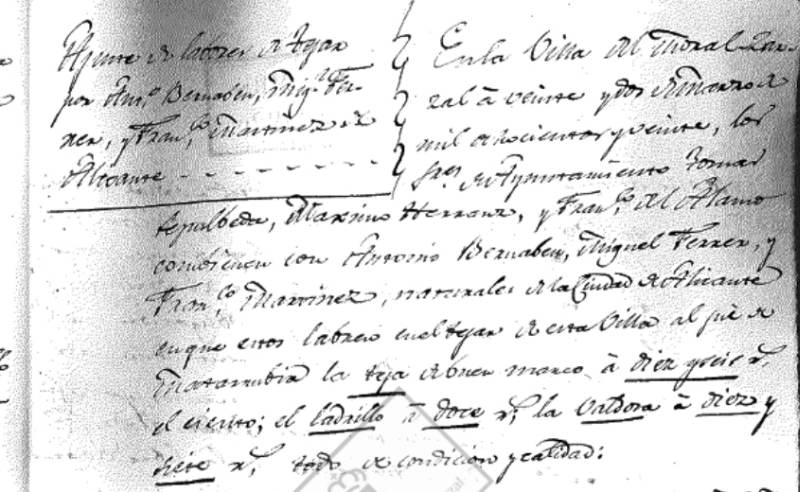 Ajuste de labores de tejar
por Ant.º Bernabeu, Mig.l Fe-
rrer, y Fran.co Martinez de
Alicante
En la Villa del Moral Zar-
zal à veinte y dos de Marzo de
mil ochocientos y veinte, los
Sres. de Ayuntamiento Tomas
Sepulbeda, Maximo Herranz, y Fran.co del Alamo
combienen con Antonio Bernabeu, Miguel Ferrer, y
Fran.co Martinez, naturales de la Ciudad de Alicante
en que estos labren en el tejar de esta Villa al pie de
Matarrubia la teja de buen marco à diez y seis rs.
el ciento; el ladrillo à doce rs. la Valdosa à diez y
siete rs. todo de condicion y calidad: